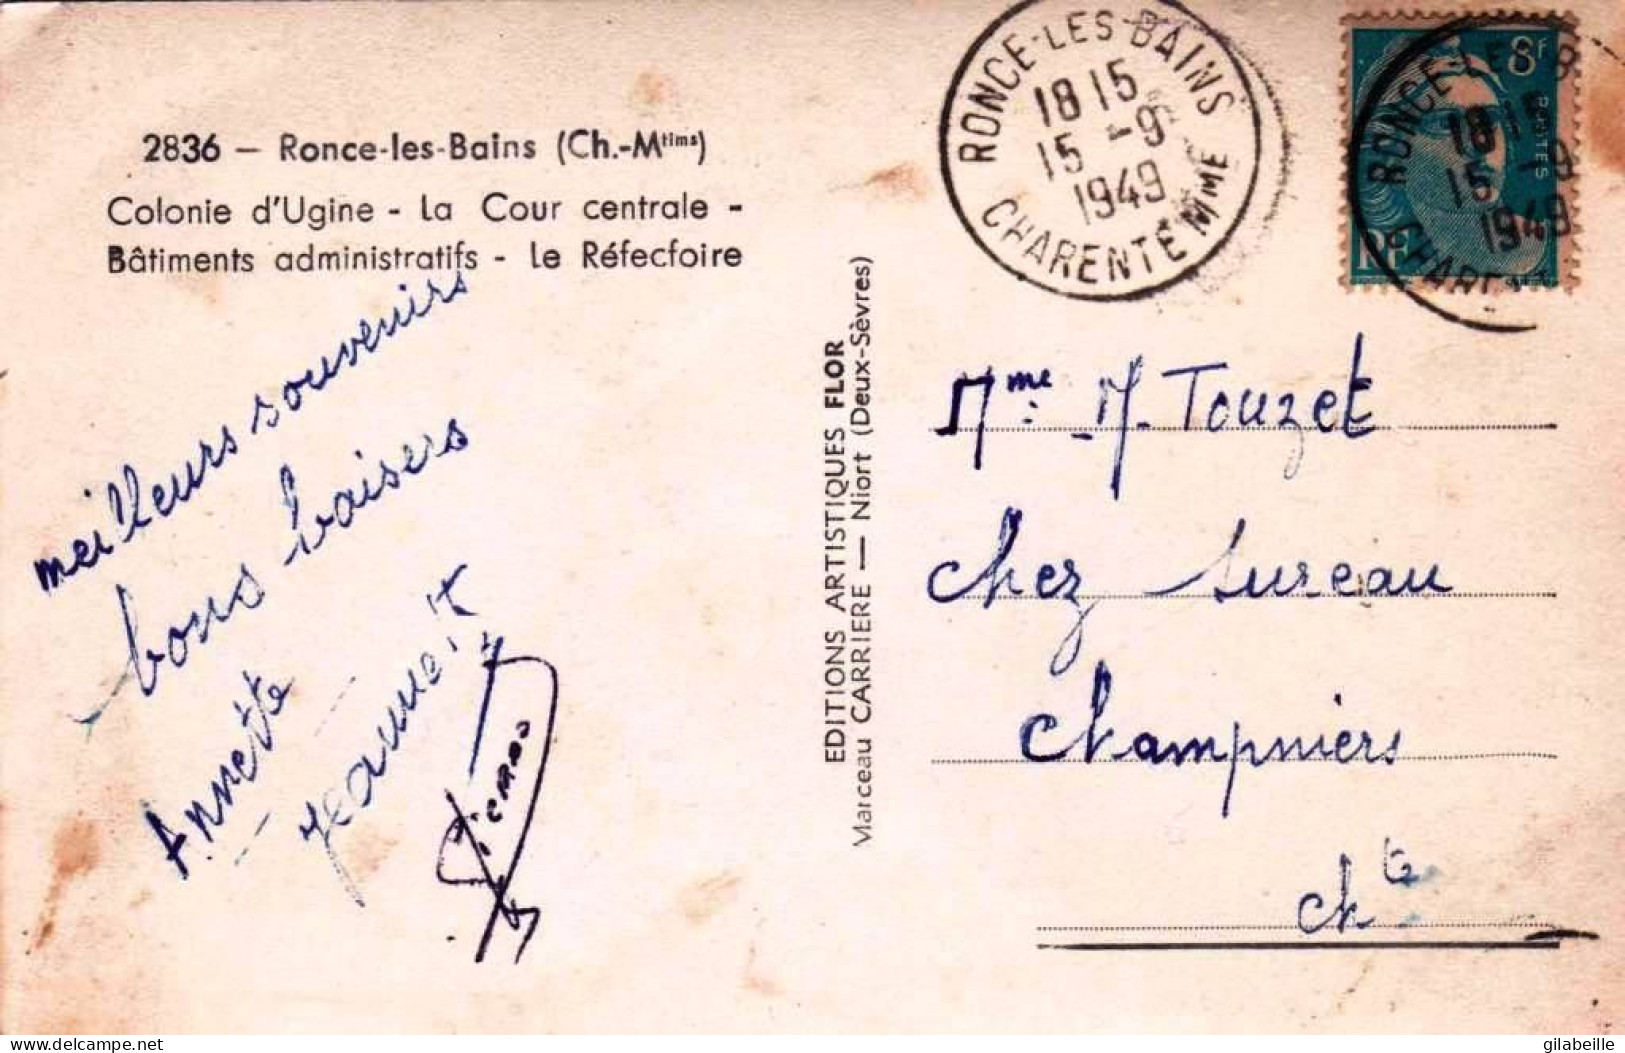 2836 — Ronce-les-Bains (Ch.-Mtims)
Colonie d'Ugine - La Cour centrale -
Bâtiments administratifs - Le Réfectoire
meilleurs souvenirs
bons baisers
Annette
Jeannett
EDITIONS ARTISTIQUES FLOR
Marceau CARRIERE — Niort (Deux-Sèvres)
RONCE-LES-BAINS
18 15
15 -9
1949
CHARENTE MME
8F
POSTES
RF
RONCE-LES-B
18 15
15 -9
1949
CHAREN
Mme M. Touzet
chez Sureau
Champniers
Chte
delcampe.net
gilabeille